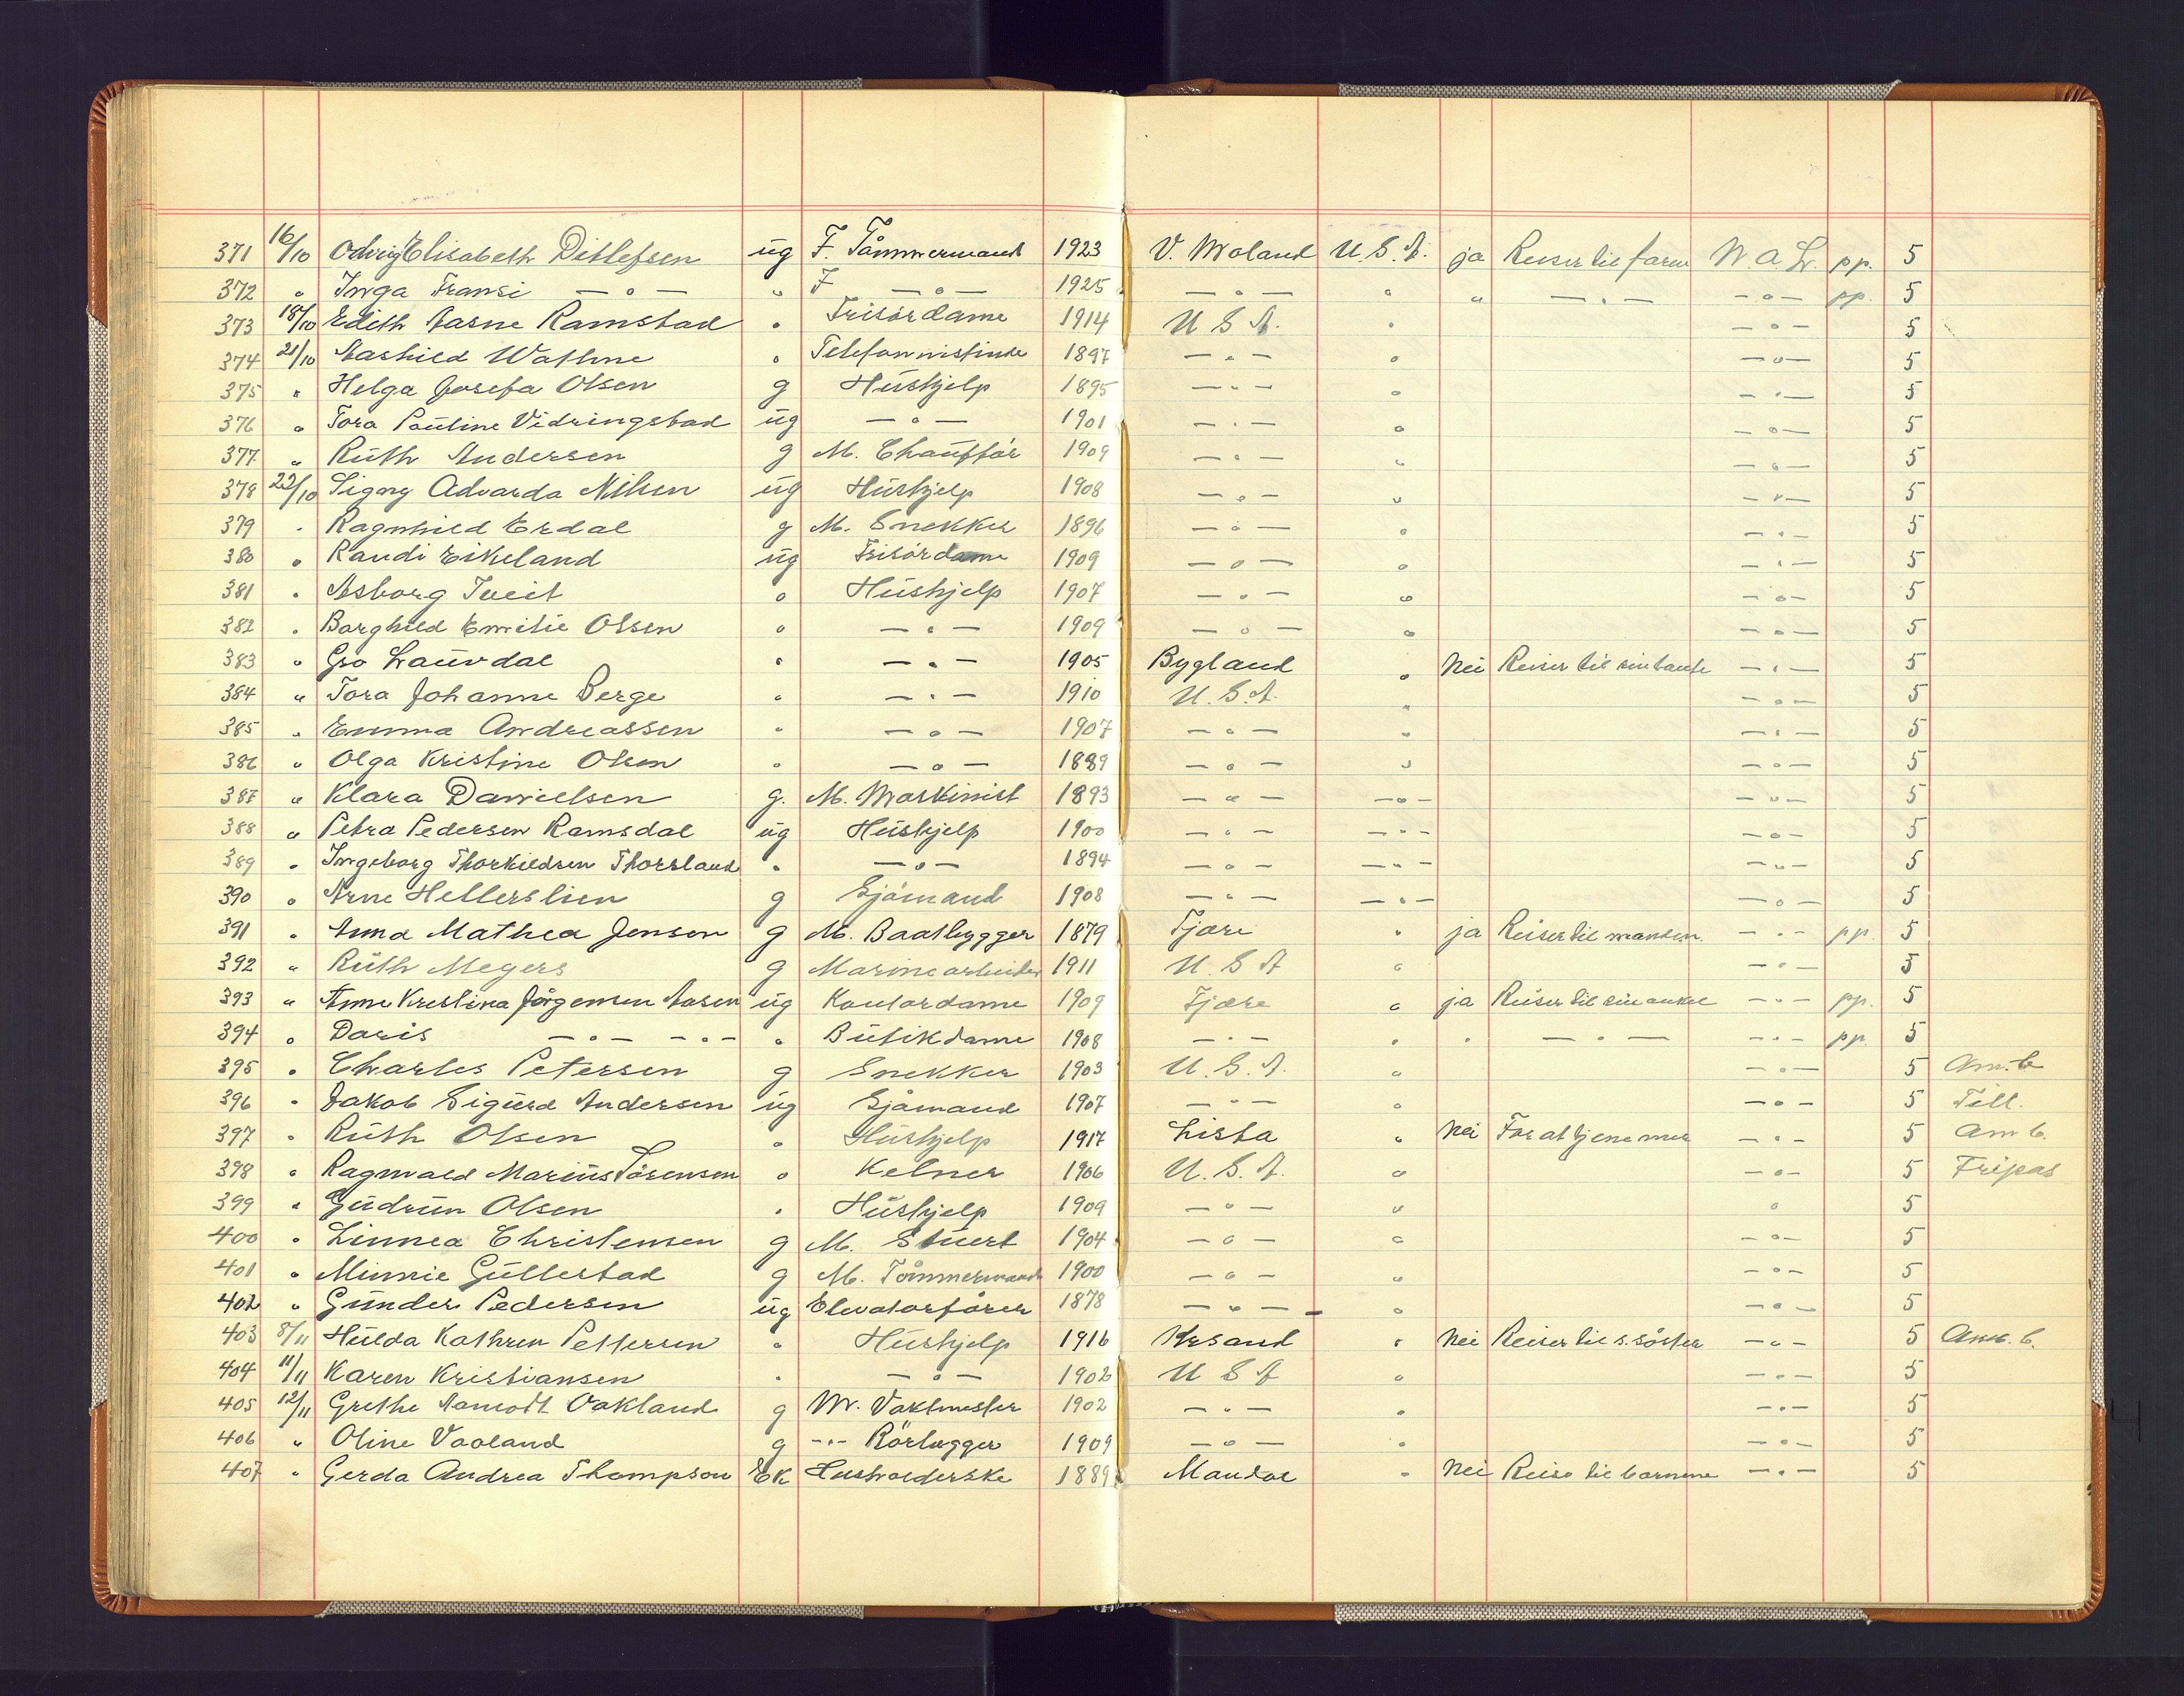 371 16/10 Odvig Elisabeth Ditlefsen ug F. Tømmermand 1923 V. Moland U.S.A. ja Reiser til faren N.A.L. pp. 5
372 " Inga Fransi —"— " F —"— 1925 —"— " " —"— —"— pp. 5
373 18/10 Edith Aasne Ramstad " Frisördame 1914 U S A. " —"— 5
374 21/10 Aashild Wathne " Telefonnistinde 1897 —"— " —"— 5
375 " Helga Josefa Olsen g Hushjelp 1895 —"— " —"— 5
376 " Tora Pauline Vidringstad ug —"— 1901 —"— " —"— 5
377 " Ruth Andersen g M. Chauffør 1909 —"— " —"— 5
378 22/10 Signy Advarda Nilsen ug Hushjelp 1908 —"— " —"— 5
379 " Ragnhild Erdal g M. Snekker 1896 —"— " —"— 5
380 " Randi Eikeland ug Frisördame 1909 —"— " —"— 5
381 " Asborg Tveit " Hushjelp 1907 —"— " —"— 5
382 " Borghild Emilie Olsen " —"— 1909 —"— " —"— 5
383 " Gro Lauvdal " —"— 1905 Bygland " Nei Reiser til sin tante —"— 5
384 " Tora Johanne Berge " —"— 1910 U.S.A. " —"— 5
385 " Emma Andreassen " —"— 1907 —"— " —"— 5
386 " Olga Kristine Olsen " —"— 1889 —"— " —"— 5
387 " Klara Danielsen g. M. Maskinist 1893 —"— —"— —"— 5
388 " Petra Pedersen Ramsdal ug Hushjelp 1900 —"— —"— —"— 5
389 " Ingeborg Thorkildsen Thorsland " —"— 1894 —"— —"— —"— 5
390 " Arne Hellerslien g Sjömand 1908 —"— —"— —"— 5
391 " Anna Mathea Jensen g M. Baatbygger 1879 Fjære " ja Reiser til manden. —"— pp. 5
392 " Ruth Megers g Marinearbeider 1911 U.S A " —"— 5
393 " Anne Kristina Jörgensen Aasen ug Kontordame 1909 Fjære " ja Reiser til sin onkel —"— pp. 5
394 " Doris —"— —"— " Butikdame 1908 —"— " " —"— —"— pp. 5
395 " Charles Petersen g Snekker 1903 U.S.A. " —"— 5 Am.b
396 " Jakob Sigurd Andersen ug Sjömand 1907 —"— " —"— 5 Till.
397 " Ruth Olsen " Hushjelp 1917 Lista " Nei For at tjene mer —"— 5 Am b.
398 " Ragnvald Marius Sörensen " Kelner 1906 U.S.A. " —"— 5 Fripas
399 " Gudrun Olsen " Hushjelp 1909 —"— " " 5
400 " Linnea Christensen g M. Stuert 1904 —"— " —"— 5
401 " Minnie Gullestad g M. Tömmermand 1900 —"— " —"— 5
402 " Gunder Pedersen ug Elevatorförer 1878 —"— " —"— 5
403 8/11 Hulda Kathren Pettersen " Hushjelp 1916 Krsand " Nei Reiser til s. söster —"— 5 Am. b.
404 11/11 Karen Kristiansen " —"— 1902 U S A " —"— 5
405 12/11 Grethe Aamodt Oakland g M. Vaktmester 1902 —"— " —"— 5
406 " Oline Vaaland g —"— Rörlegger 1909 —"— " —"— 5
407 " Gerda Andrea Thompson Ek Husholderske 1889 Mandal " Nei Reise til barnene —"— 5